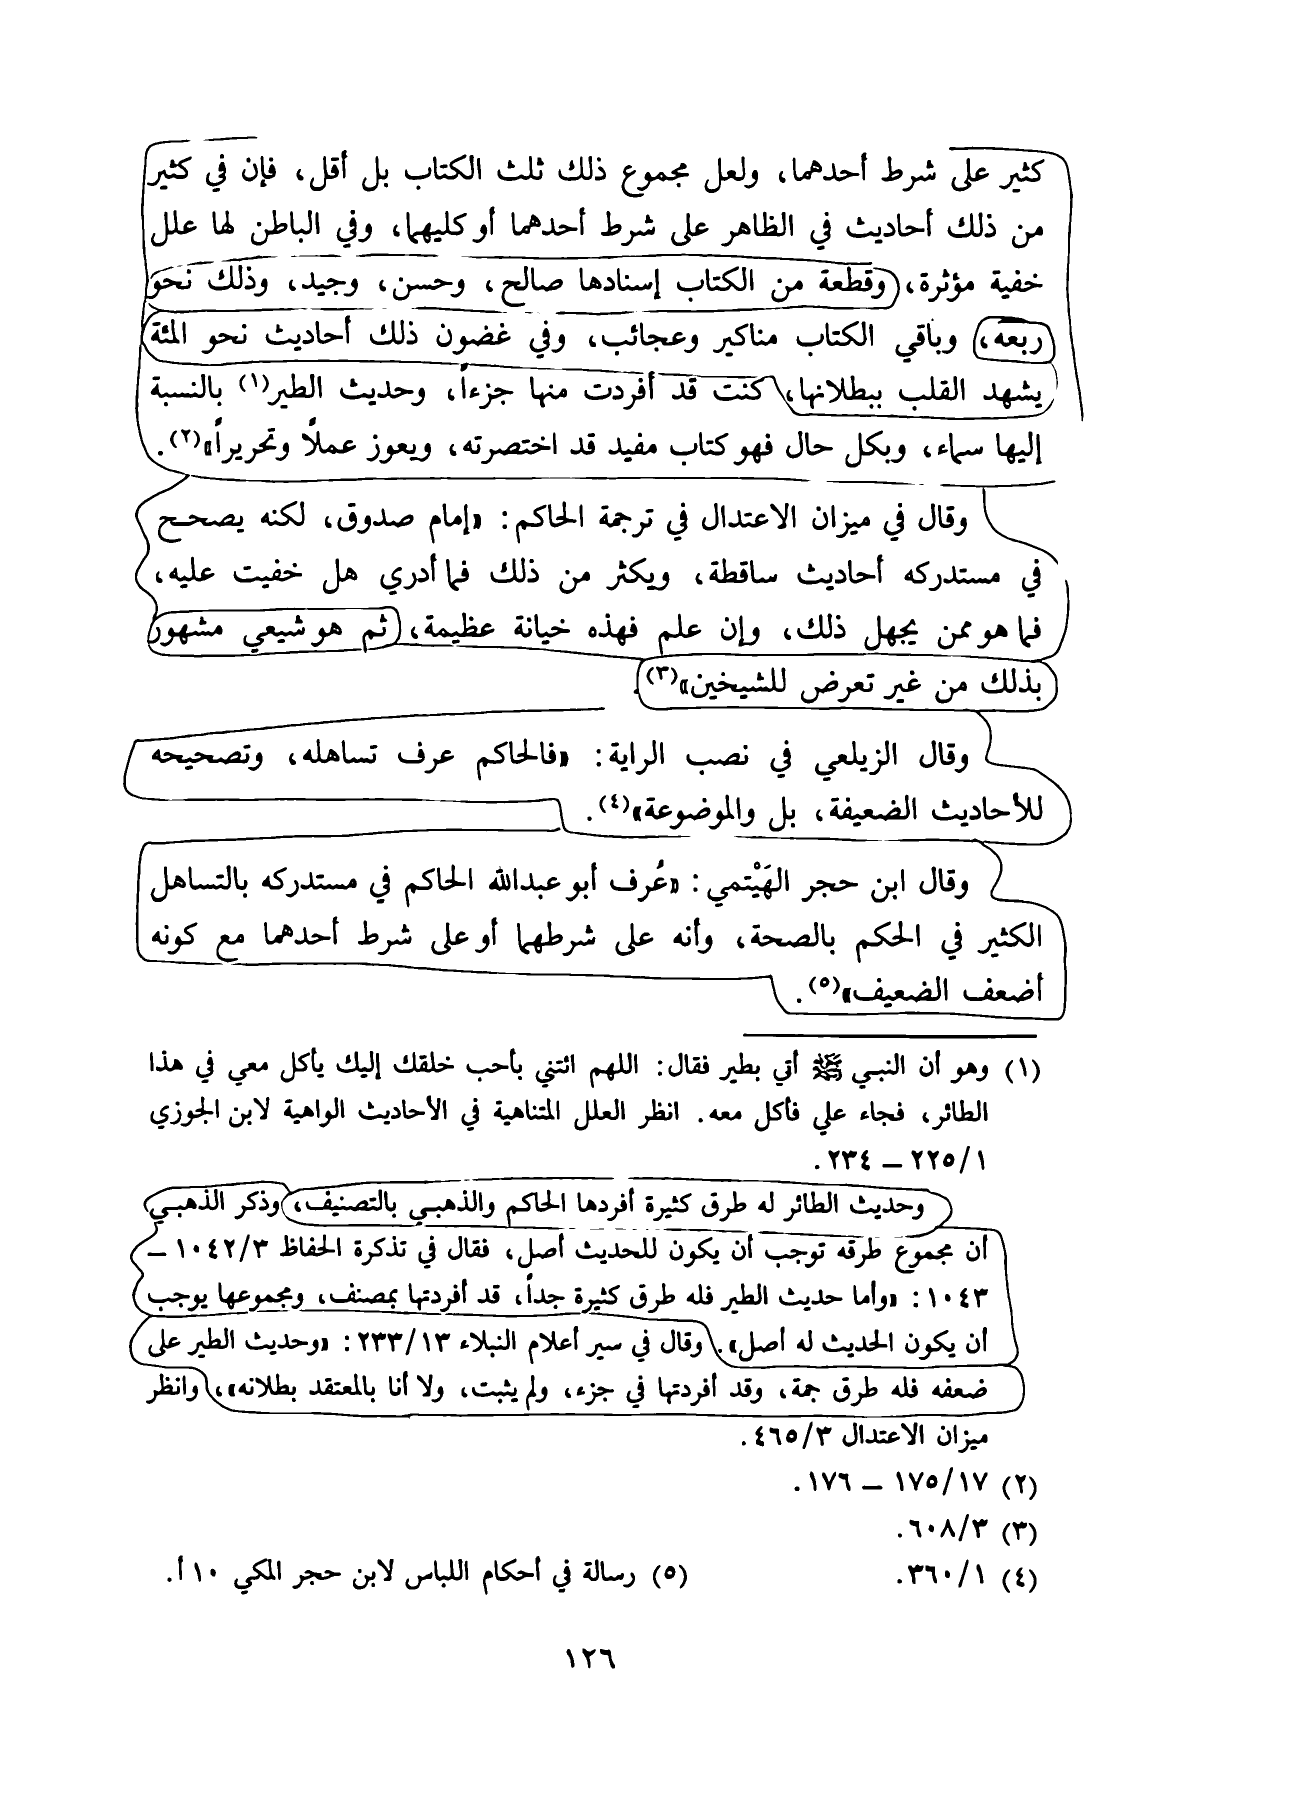 كثير على شرط أحدهما، ولعل مجموع ذلك ثلث الكتاب بل أقل، فإن في كثير
من ذلك أحاديث في الظاهر على شرط أحدهما أو كليهما، وفي الباطن لها علل
خفية مؤثرة، وقطعة من الكتاب إسنادها صالح، وحسن، وجيد، وذلك نحو
ربعه، وباقي الكتاب مناكير وعجائب، وفي غضون ذلك أحاديث نحو المئة
يشهد القلب ببطلانها، كنت قد أفردت منها جزءاً، وحديث الطير(١) بالنسبة
إليها سماء، وبكل حال فهو كتاب مفيد قد اختصرته، ويعوز عملاً وتحريراً»(٢).
وقال في ميزان الاعتدال في ترجمة الحاكم: «إمام صدوق، لكنه يصحح
في مستدركه أحاديث ساقطة، ويكثر من ذلك فما أدري هل خفيت عليه،
فما هو ممن يجهل ذلك، وإن علم فهذه خيانة عظيمة، ثم هو شيعي مشهور
بذلك من غير تعرض للشيخين»(٣).
وقال الزيلعي في نصب الراية: «فالحاكم عرف تساهله، وتصحيحه
للأحاديث الضعيفة، بل والموضوعة»(٤).
وقال ابن حجر الهَيْتمي: «عُرف أبو عبدالله الحاكم في مستدركه بالتساهل
الكثير في الحكم بالصحة، وأنه على شرطهما أو على شرط أحدهما مع كونه
أضعف الضعيف»(٥).
(١) وهو أن النبي ﷺ أتي بطير فقال: اللهم ائتني بأحب خلقك إليك يأكل معي في هذا
الطائر، فجاء علي فأكل معه. انظر العلل المتناهية في الأحاديث الواهية لابن الجوزي
٢٢٥/١ – ٢٣٤.
وحديث الطائر له طرق كثيرة أفردها الحاكم والذهبي بالتصنيف، وذكر الذهبي
أن مجموع طرقه توجب أن يكون للحديث أصل، فقال في تذكرة الحفاظ ١٠٤٢/٣ –
١٠٤٣: «وأما حديث الطير فله طرق كثيرة جداً، قد أفردتها بمصنف، ومجموعها يوجب
أن يكون الحديث له أصل». وقال في سير أعلام النبلاء ٢٣٣/١٣: «وحديث الطير على
ضعفه فله طرق جمة، وقد أفردتها في جزء، ولم يثبت، ولا أنا بالمعتقد بطلانه»، وانظر
ميزان الاعتدال ٤٦٥/٣.
(٢) ١٧٥/١٧ – ١٧٦.
(٣) ٦٠٨/٣.
(٤) ٣٦٠/١. (٥) رسالة في أحكام اللباس لابن حجر المكي ١٠ أ.
١٢٦